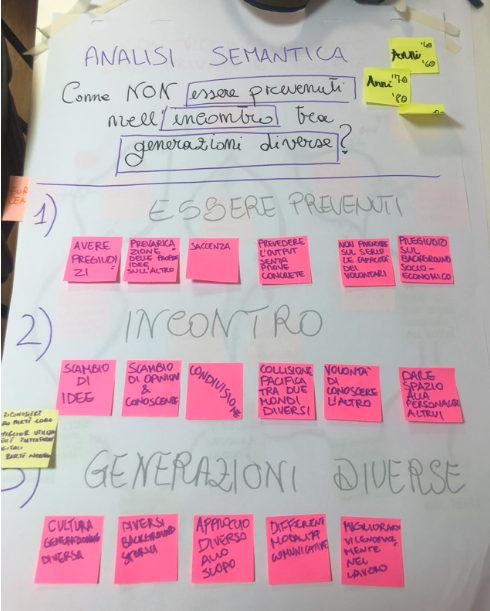 ANALISI SEMANTICA
Anni '40
'60
Anni '70
'80
Come NON essere prevenuti
nell'incontro tra
generazioni diverse?
1) ESSERE PREVENUTI
AVERE
PREGIUDI
ZI
PREVARICA
ZIONE
DELLE PROPRIE
IDEE
SULL'ALTRO
SACCENZA
PREVEDERE
L'OUTPUT
SENZA
PROVE
CONCRETE
NON
SUL SERIO
LE CAPACITÀ
DEI
VOLONTARI
PREGIUDIZI
SUL
BACKGROUND
SOCIO-
ECONOMICO
2) INCONTRO
SCAMBIO
DI
IDEE
SCAMBIO
DI OPINIONI
&
CONOSCENZE
CONDIVISIONE
COLLISIONE
PACIFICA
TRA DUE
MONDI
DIVERSI
VOLONTÀ
DI
CONOSCERE
L'ALTRO
DARE
SPAZIO
ALLA
PERSONALITÀ
ALTRUI
3) GENERAZIONI DIVERSE
CULTURA
GENERAZIONALE
DIVERSA
DIVERSI
BACKGROUND
STORICI
APPROCCIO
DIVERSO
ALLO
SCOPO
DIFFERENTI
MODALITÀ
COMUNICATIVE
NEL
LAVORO